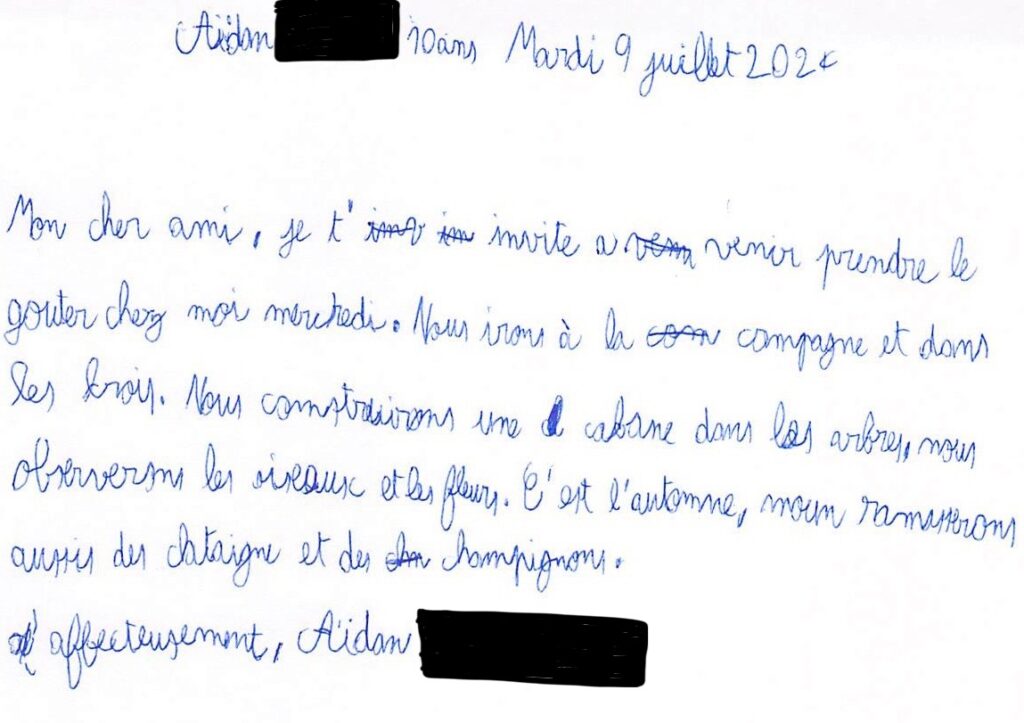 Aïdan 10 ans Mardi 9 juillet 2024
Mon cher ami, je t' inv in invite a venir prendre le
gouter chez moi mercredi. Nous irons à la com campagne et dans
les bois. Nous constrairons une cabane dans les arbres, nous
observerons les oiseaux et les fleurs. C'est l'automne, noun ramasserons
aussis des chataigne et des champignons.
affecteusement, Aïdan